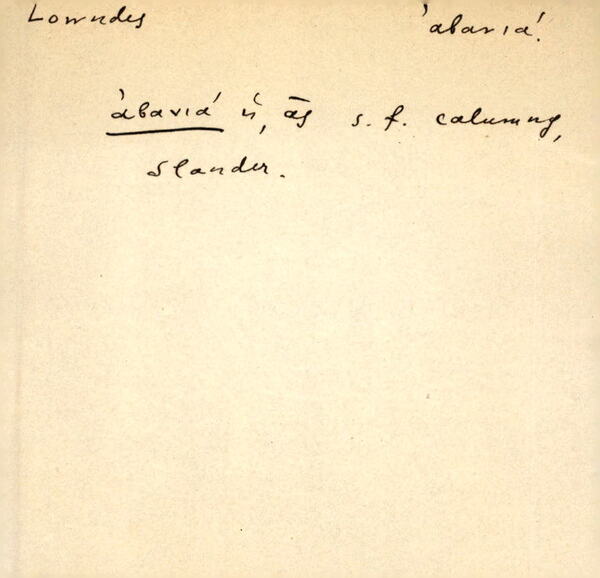 Lowndes ἀβανιά.
ἀβανιά ἡ, ᾶς s. f. calumny,
slander.